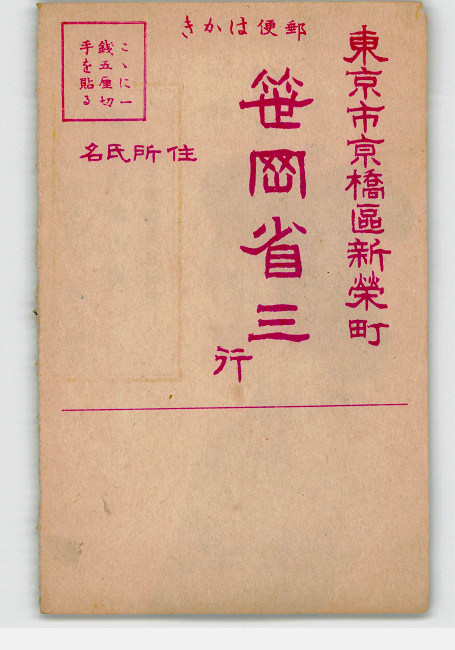 郵便はかき
東京市京橋區新榮町
笹岡省三
行
こゝに一
銭五厘切
手を貼る
住所氏名